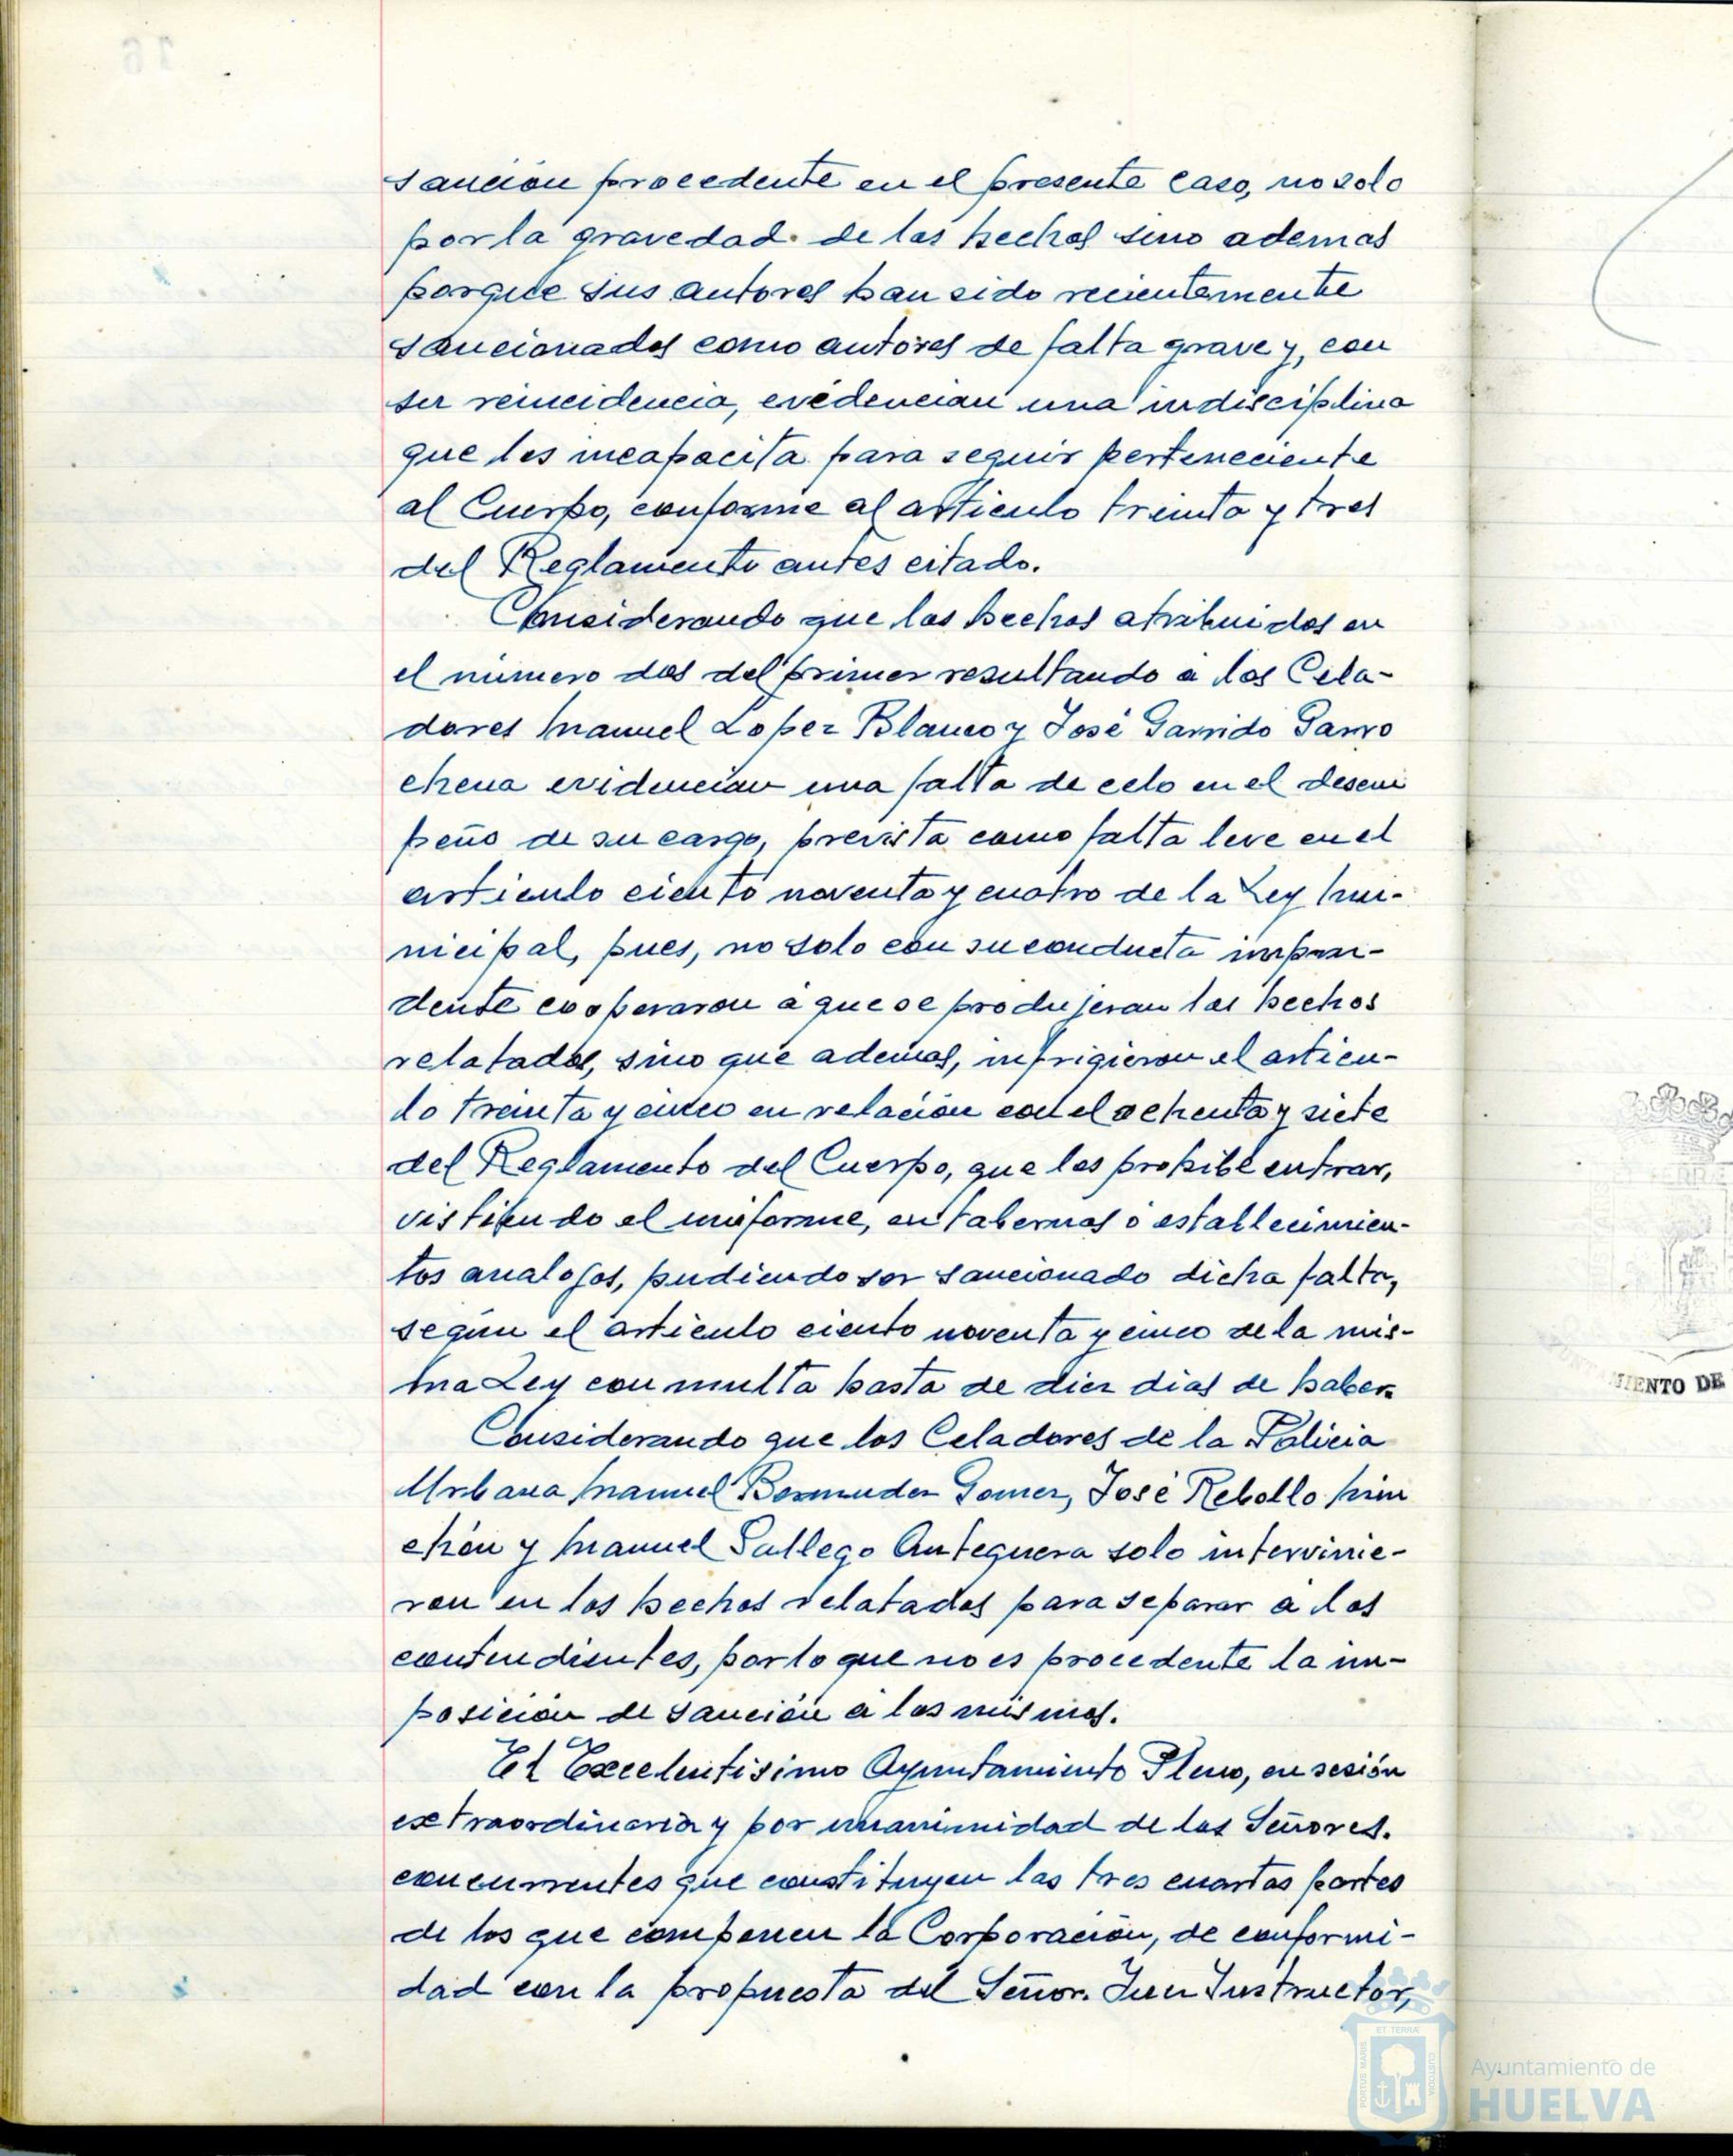 sanción procedente en el presente caso, no solo
por la gravedad de los hechos sino ademas
porque sus autores han sido recientemente
sancionados como autores de falta grave y, con
su reincidencia, evidencian una indisciplina
que les incapacita para seguir perteneciente
al Cuerpo, conforme al articulo treinta y tres
del Reglamento antes citado.
Considerando que los hechos atribuidos en
el número dos del primer resultando a los Cela-
dores Manuel Lopez Blanco y José Garrido Garro
chena evidencian una falta de celo en el desem
peño de su cargo, prevista como falta leve en el
articulo ciento noventa y cuatro de la Ley Mu-
nicipal, pues, no solo con su conducta impru-
dente cooperaron a que se produjeran los hechos
relatados, sino que ademas, infrigieron el articu-
lo treinta y cinco en relación con el ochenta y siete
del Reglamento del Cuerpo, que les prohibe entrar,
vistiendo el uniforme, en tabernas o establecimien-
tos analogos, pudiendo ser sancionado dicha falta,
según el articulo ciento noventa y cinco de la mis-
ma Ley con multa hasta de diez dias de haber.
Considerando que los Celadores de la Policia
Urbana Manuel Bermudez Gomez, José Rebollo Min
chón y Manuel Gallego Antequera solo intervinie-
ron en los hechos relatados para separar a los
contendientes, por lo que no es procedente la im-
posición de sanción a los mismos.
El Excelentisimo Ayuntamiento Pleno, en sesión
extraordinaria y por unanimidad de los Señores.
concurrentes que constituyen las tres cuartas partes
de los que componen la Corporación, de conformi-
dad con la propuesta del Señor. Juez Instructor,
MIENTO DE
ET TERRA
PORTUS MARIS
CUSTODIA
Ayuntamiento de
HUELVA